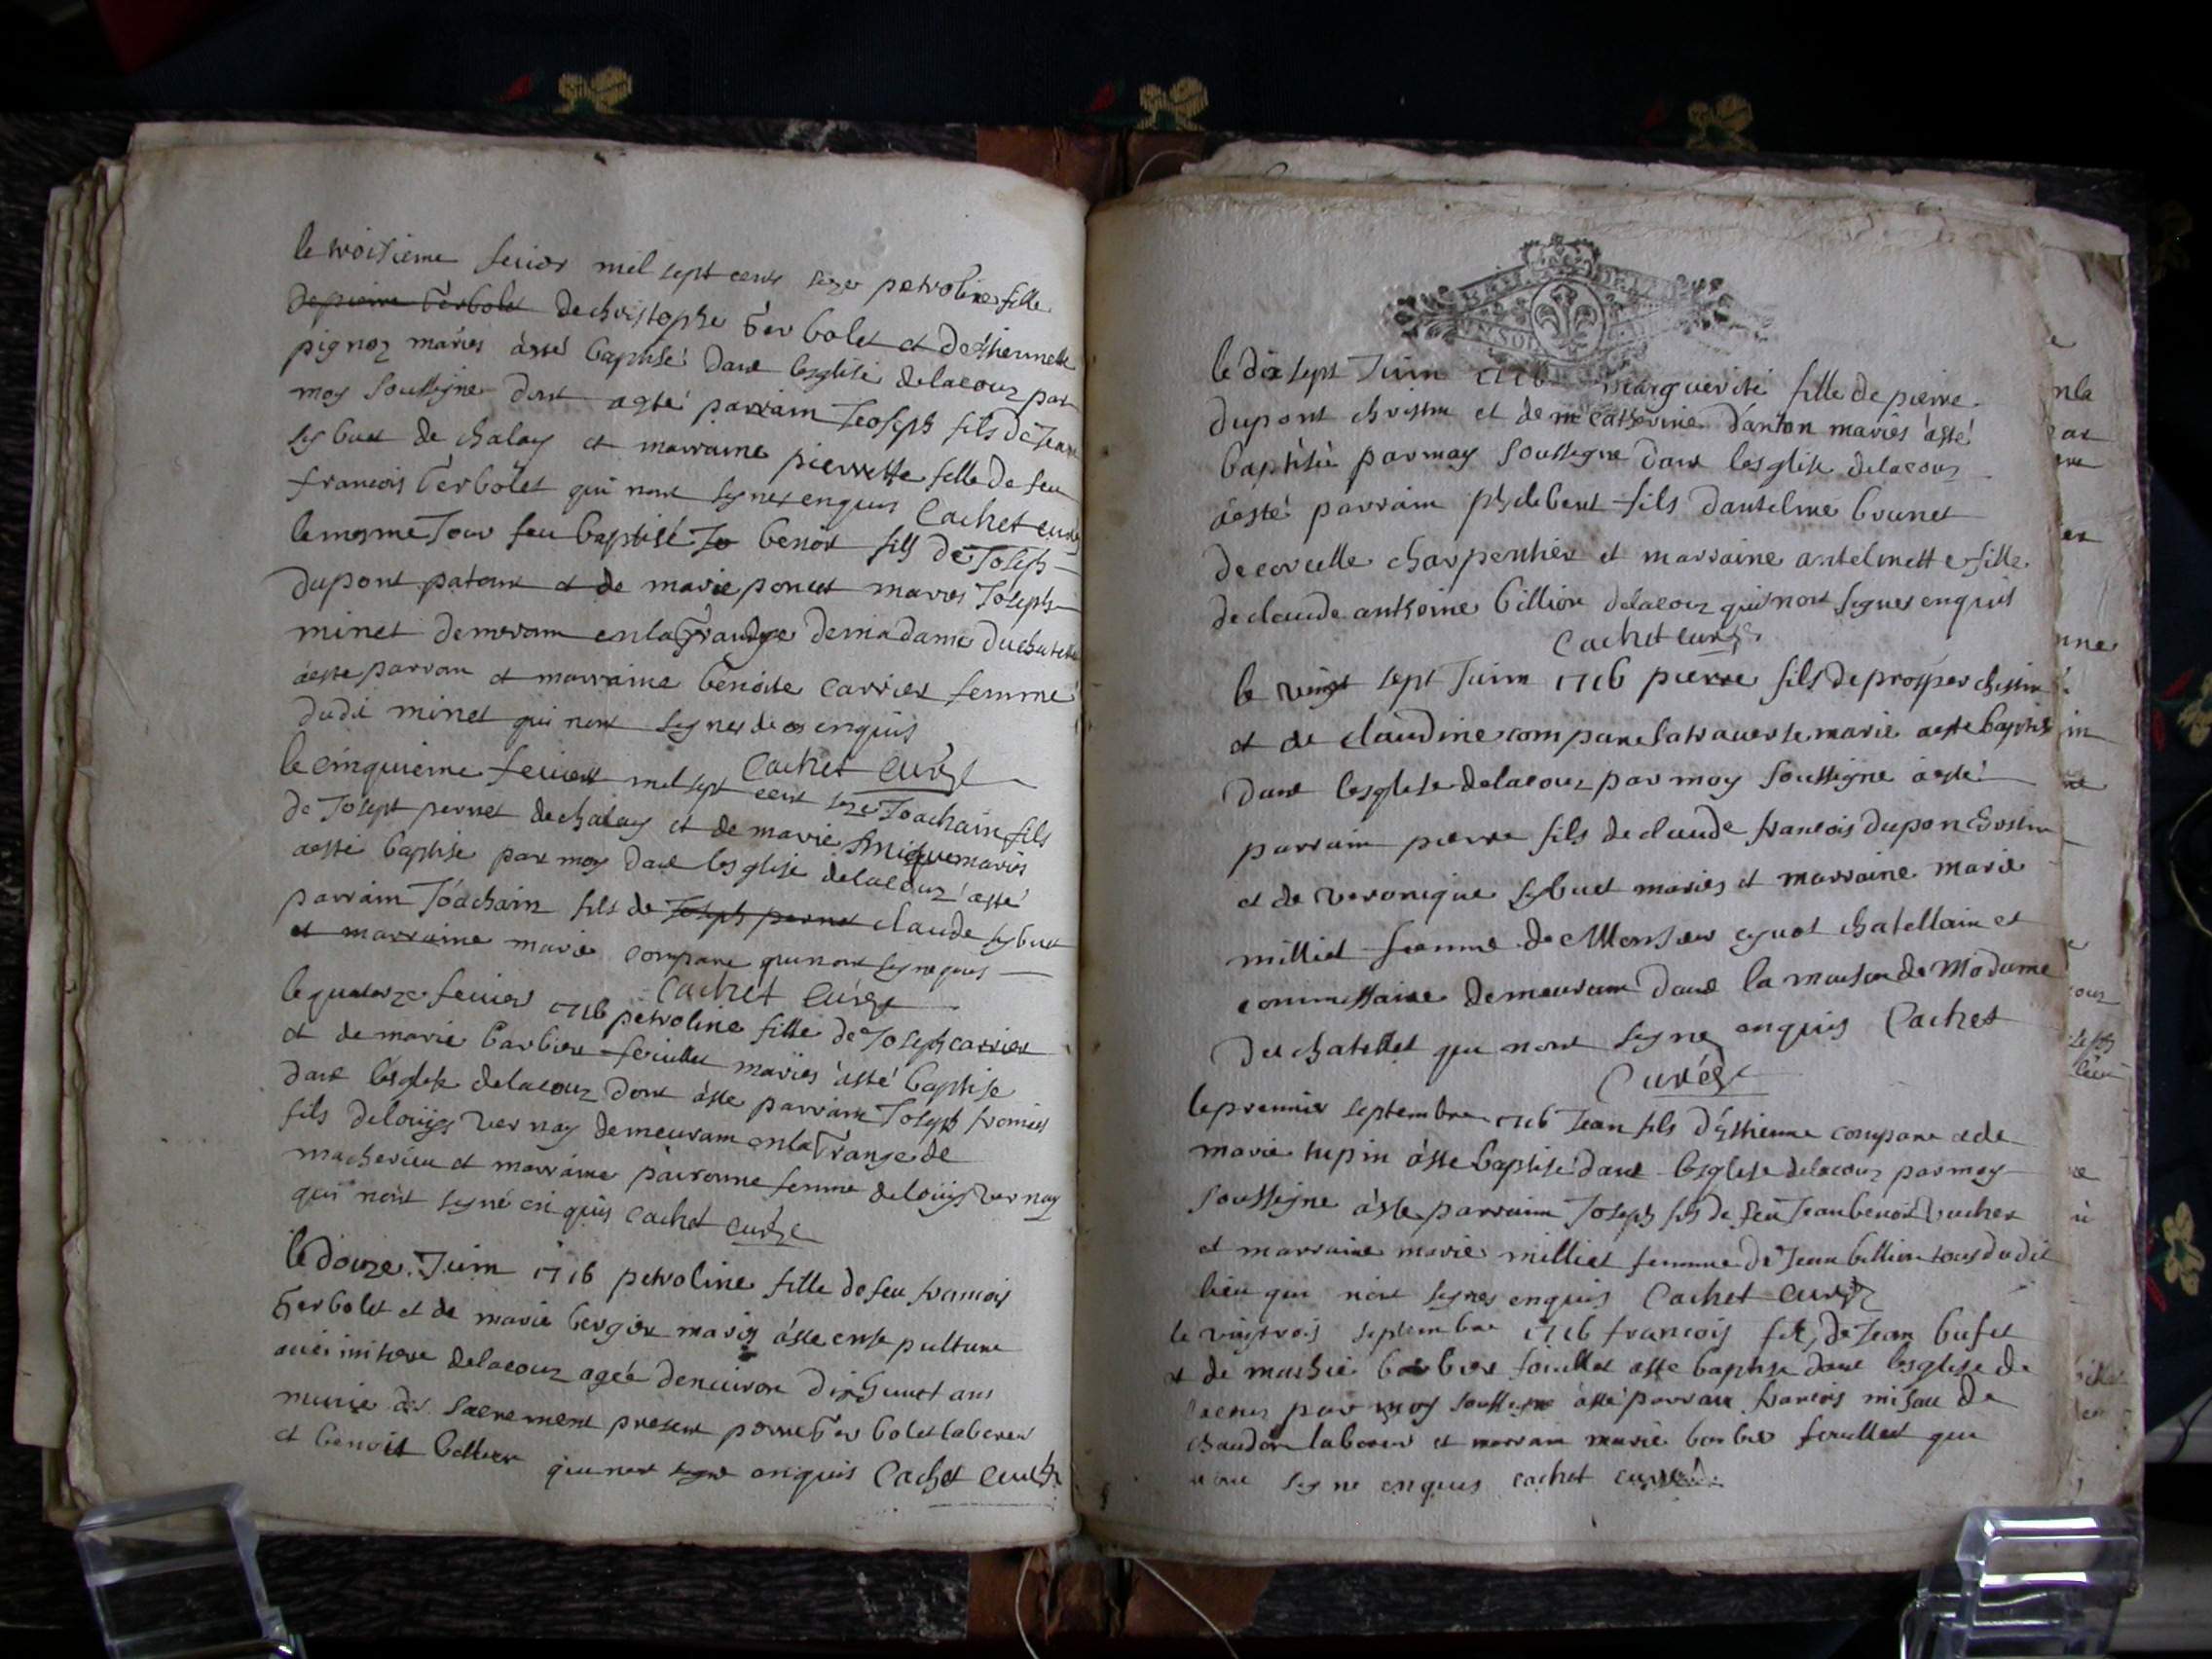 le troisieme feuier mil sept cent seze petroline fille
de pierre berbolet de christophe berbolet et dethiennette
pignoz mariés àesté baptisé dans lesglise delacouz par
moy soussigne dont aesté parrain Jeoseph fils de Jean
sybuet de chaley et marraine pierrette fille de feu
francois berbolet qui nont signes enquis Cachet curé
lemesme Jour feu baptisé benoit fils de Joseph
dupont patam et de marie poncet maries Joseph
minet demeuram enla grandge demadame duchatelet
aeste parram et marraine benoite carrier femme
dudit minet qui nont signes enquis
Cachet curé
le cinquieme feurier mil sept cent seze Joachain fils
de Josept pernet dechaley et de marie maries
aesté baptise par moy dans lesglise delacouz aesté
parrain Joachain fils de Joseph pernet claude sybuet
et marraine marie compane qui nont signe quis
Cachet curé
le quatorze feurier 1716 petroline fille de Joseph carrier
et de marie barbier feuillet mariés àesté baptise
dans lesglise delacouz dont àeste parrain Joseph
fils delouijs vernay demeuram enla Grange de
macherieu et marraine pairoune femme delouijs vernay
qui nont signé en quis cachet curé
le douze Juin 1716 petroline fille de feu francois
berbolet et de marie bergier maries àeste ensepulture
aucimitiere delacouz ageé denuiron dixhuict ans
munie des sacrement present pierre berbolet laborer
et benoit billion qui nont signe enquis Cachet curé
le dix sept Juin 1716 marguerite fille de pierre
dupont christin et de catherine danton mariés àesté
baptisée parmoy soussigne dans lesglise delacouz
àesté parrain philebert fils dantelme brunet
decorcelle charpentier et marraine antelmette fille
declaude anthoine billion delacouz qui nont signes enquis
Cachet curé
le vingt sept Juin 1716 pierre fils de prosper
et de claudine compane latrauerse marie aeste baptise
dans lesglise delacouz par moy soussigne àesté
parrain pierre fils declaude francois dupon
et de veronique sybuet maries et marraine marie
milliet femme de Monsieur cyuot chatellain et
commissaire demeuram dans la maison de Madame
du chatellet qui nont signe enquis Cachet
Curé
le premier septembre 1716 Jean fils d'esthienne compane et de
marie tupin àeste baptisé dans lesglise delacouz parmoy
soussigne àeste parrain Joseph fils de feu Jean benoit vucher
et marraine marie milliet femme de Jean billion tous dudit
lieu qui nont signes enquis Cachet curé
le vingtrois septembre 1716 francois fils de Jean bufet
et de mathie barbier feuillet aeste baptise dans lesglise de
lacouz par moy soussigne àesté parrain francois de
chaudon laborer et marrain marie barbier feuillet qui
nont signe enquis cachet curé